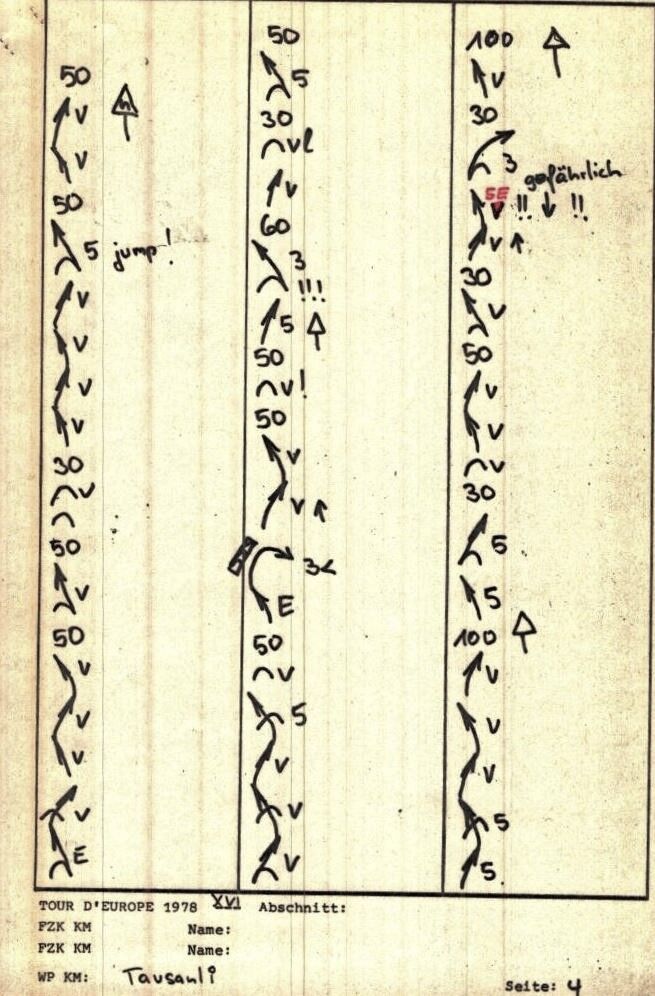 50
v
v
50
5 jump!
v
v
v
v
30
v
50
v
50
v
v
v
v
E
50
5
30
vl
v
60
3
!!!
5
50
v!
50
v
v
3<
E
50
v
5
v
v
v
100
v
30
3 gefährlich
SE
v !! !!
v
30
v
50
v
v
v
30
5
5
100
v
v
v
5
5
TOUR D'EUROPE 1978 XVI Abschnitt:
FZK KM Name:
FZK KM Name:
WP KM: Tavsanli
Seite: 4